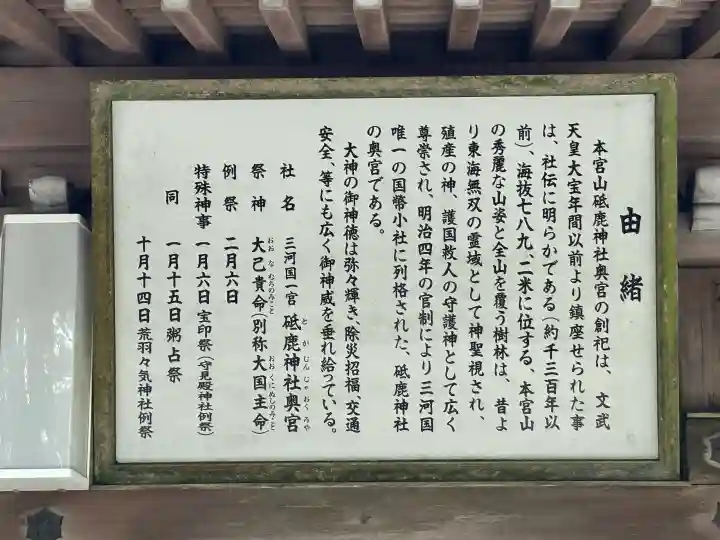 由緒
本宮山砥鹿神社奥宮の創祀は、文武
天皇大宝年間以前より鎮座せられた事
は、社伝に明らかである(約千三百年以
前)、海抜七八九、二米に位する、本宮山
の秀麗な山姿と全山を覆う樹林は、昔よ
り東海無双の霊域として神聖視され、
殖産の神、護国救人の守護神として広く
尊崇され、明治四年の官制により三河国
唯一の国幣小社に列格された、砥鹿神社
の奥宮である。
大神の御神徳は弥々輝き、除災招福、交通
安全、等にも広く御神威を垂れ給っている。
社名 三河国一宮 砥鹿神社奥宮
とがじんじゃおくみや
祭神 大己貴命(別称大国主命)
おおなむちのみこと おおくにぬしのみこと
例祭 二月六日
特殊神事 一月六日 宝印祭(守見殿神社例祭)
同 一月十五日 粥占祭
十月十四日 荒羽々気神社例祭